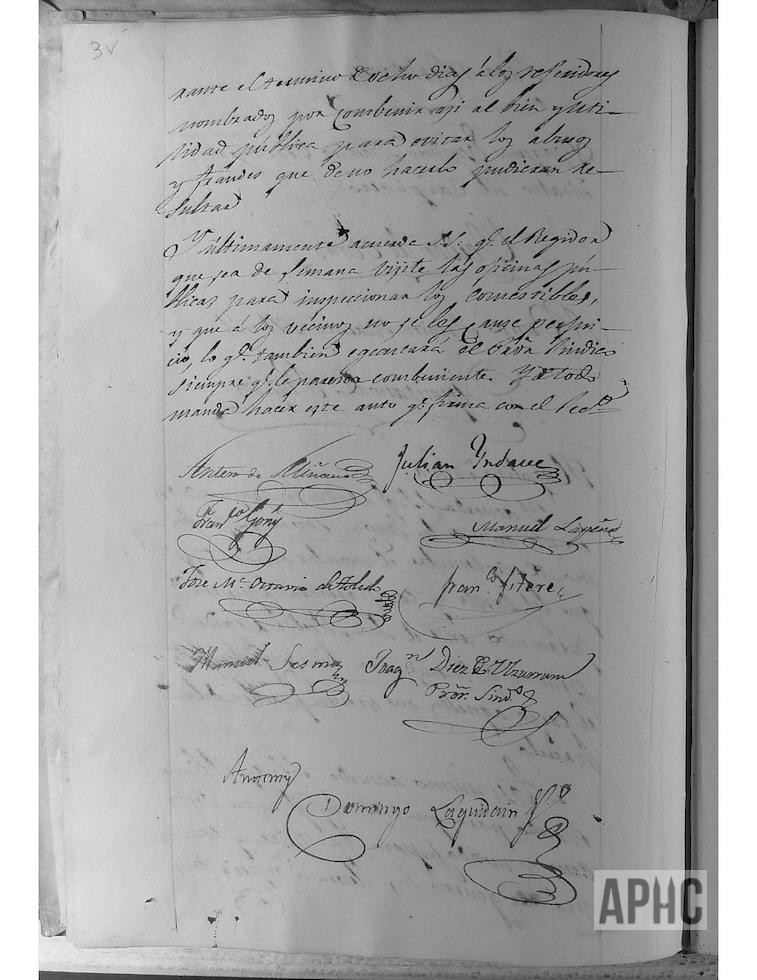 3v
rante el termino de ocho dias á los referidos
nombrados por combenir asi al bien y uti-
lidad publica para evitar los abusos
y fraudes que de no hacerlo pudieran re-
sultar
Y últimamente acuerda S.S. qe. el Regidor
que sea de semana visite las oficinas pú-
blicas para inspeccionar los comestibles,
y que á los vecinos no se les cause perjui-
cio, lo qe. tambien egecutará el Síndico
siempre qe. le parezca combeniente. Y de todo
mandó hacer este auto qe. firma con el Secro.
Antero de Miñano Julian Yndave
Franco. Gonz
Manuel Lapeña
Jose Ma. Octavio de Toledo
Franco. Fitero
Manuel Lesma Joaqn. Diez de Ulzurrun
Pror. Sindo.
Ante mi
Domingo Laquidain Sno.
APHC